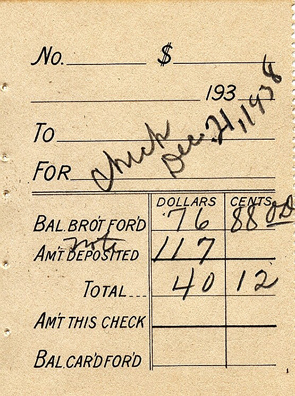 No. $
193 8
To
For Check Dec. 21, 1938
DOLLARS CENTS
BAL. BRO'T FOR'D 76 88 OD
note
AM'T DEPOSITED 117
TOTAL 40 12
AM'T THIS CHECK
BAL. CAR'D FOR'D